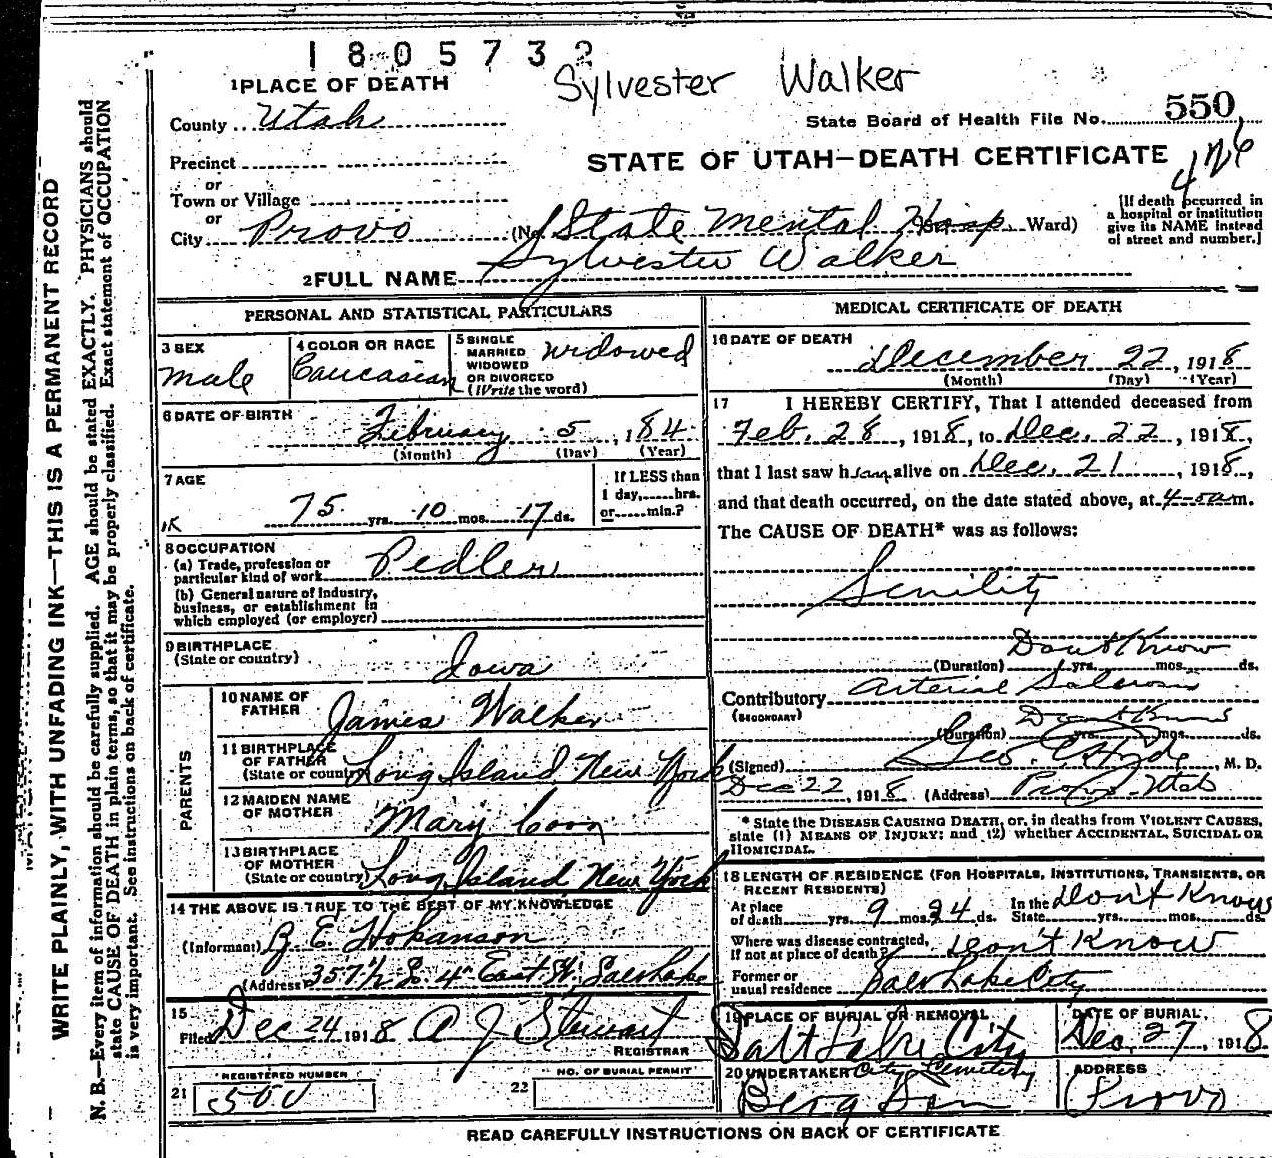 1805732
Sylvester Walker
1 PLACE OF DEATH
County Utah
State Board of Health File No. 550
Precinct
STATE OF UTAH—DEATH CERTIFICATE
or
Town or Village
or
City Provo (No. State Mental Hosp. Ward)
[If death occurred in a hospital or institution give its NAME instead of street and number.]
2 FULL NAME Sylvester Walker
PERSONAL AND STATISTICAL PARTICULARS
3 SEX male
4 COLOR OR RACE Caucasian
5 SINGLE MARRIED WIDOWED OR DIVORCED (Write the word) widowed
6 DATE OF BIRTH February 5, 184
(Month) (Day) (Year)
7 AGE 75 yrs. 10 mos. 17 ds.
If LESS than 1 day, hrs. or min.?
8 OCCUPATION
(a) Trade, profession or particular kind of work Pedler
(b) General nature of industry, business, or establishment in which employed (or employer)
9 BIRTHPLACE (State or country) Iowa
PARENTS
10 NAME OF FATHER James Walker
11 BIRTHPLACE OF FATHER (State or country) Long Island New York
12 MAIDEN NAME OF MOTHER Mary Coon
13 BIRTHPLACE OF MOTHER (State or country) Long Island New York
14 THE ABOVE IS TRUE TO THE BEST OF MY KNOWLEDGE
(Informant) E. Hokanson
(Address) 357½ S. 4" East St. Salt Lake
15
Filed Dec 24 1918 A J Stewart
REGISTRAR
REGISTERED NUMBER
21 500
22 NO. OF BURIAL PERMIT
MEDICAL CERTIFICATE OF DEATH
16 DATE OF DEATH
December 22, 1918
(Month) (Day) (Year)
17 I HEREBY CERTIFY, That I attended deceased from
Feb. 28, 1918, to Dec. 22, 1918,
that I last saw him alive on Dec. 21, 1918,
and that death occurred, on the date stated above, at 4-50 a m.
The CAUSE OF DEATH* was as follows:
Senility
Dont Know
(Duration) yrs. mos. ds.
Contributory Arterial Sclerosis
(SECONDARY)
Dont Know
(Duration) yrs. mos. ds.
(Signed) Geo. E. Hyde, M. D.
Dec 22, 1918 (Address) Provo Utah
* State the DISEASE CAUSING DEATH, or, in deaths from VIOLENT CAUSES, state (1) MEANS OF INJURY; and (2) whether ACCIDENTAL, SUICIDAL OR HOMICIDAL.
18 LENGTH OF RESIDENCE (FOR HOSPITALS, INSTITUTIONS, TRANSIENTS, OR RECENT RESIDENTS)
At place of death yrs. 9 mos. 24 ds. In the State yrs. mos. ds. don't Know
Where was disease contracted, if not at place of death? don't Know
Former or usual residence Salt Lake City
19 PLACE OF BURIAL OR REMOVAL Salt Lake City
City Cemetery
DATE OF BURIAL, Dec. 27, 1918
20 UNDERTAKER Berg
ADDRESS Provo
READ CAREFULLY INSTRUCTIONS ON BACK OF CERTIFICATE
WRITE PLAINLY, WITH UNFADING INK—THIS IS A PERMANENT RECORD
N. B.—Every item of information should be carefully supplied. AGE should be stated EXACTLY. PHYSICIANS should
state CAUSE OF DEATH in plain terms, so that it may be properly classified. Exact statement of OCCUPATION
is very important. See instructions on back of certificate.